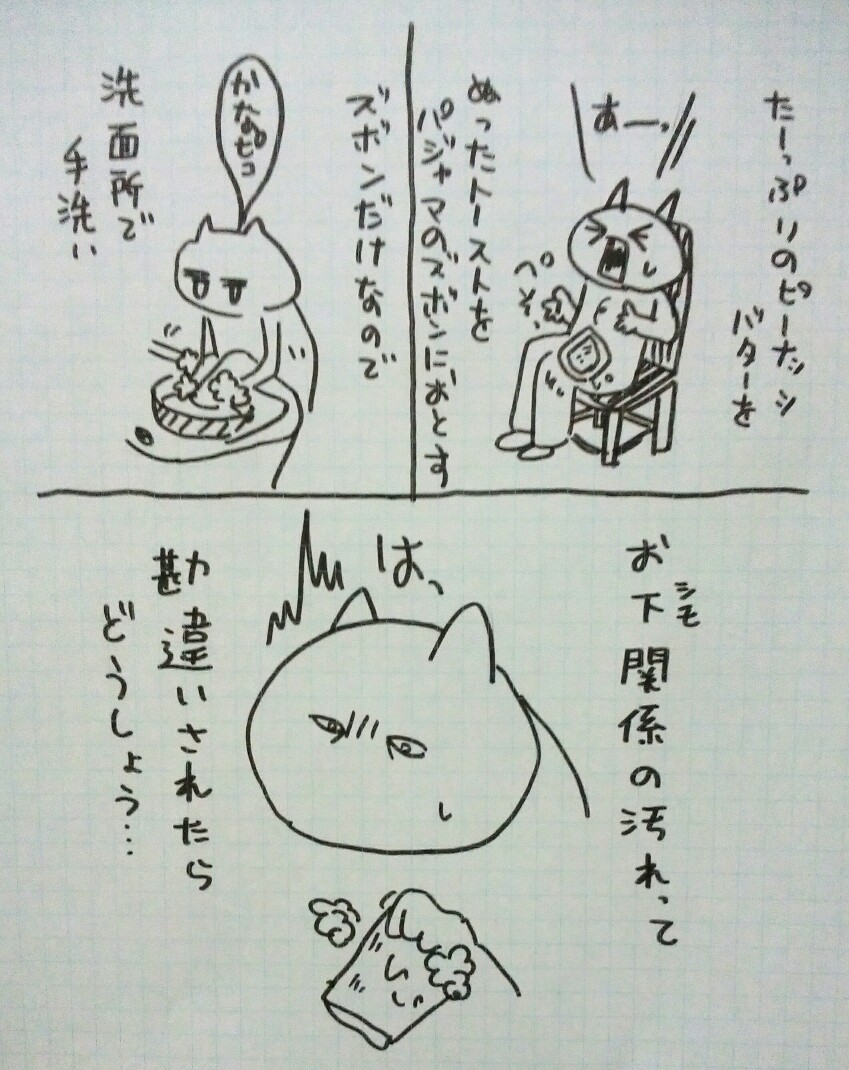 たーっぷりのピーナッツ
バターを
あーっ
ペそっ
ぬったトーストを
パジャマのズボンにおとす
ズボンだけなので
洗面所で
手洗い
お下関係の汚れって
シモ
はっ
勘違いされたら
どうしょう…